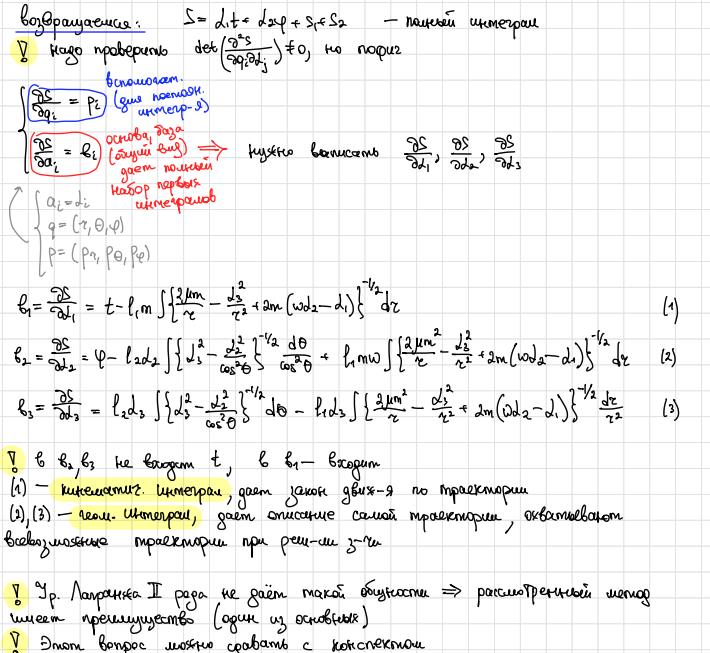 возвращаемся: S = α₁t + α₂φ + S₁ + S₂ — полный интеграл
! Надо проверить det(∂²S/∂qᵢ∂αⱼ) ≠ 0, но пофиг
вспомогат.
∂S/∂qᵢ = pᵢ (для постоян. интегр-я)
основа, база
∂S/∂aᵢ = bᵢ (общий вид) ⟹ нужно выписать ∂S/∂α₁, ∂S/∂α₂, ∂S/∂α₃
дает полный
набор первых
интегралов
aᵢ = αᵢ
q = (r, θ, φ)
p = (pr, pθ, pφ)
b₁ = ∂S/∂α₁ = t − l₁m ∫{2μm/r − α₃²/r² + 2m(ωα₂ − α₁)}^(-1/2) dr (1)
b₂ = ∂S/∂α₂ = φ − l₂α₂ ∫{α₃² − α₂²/cos²θ}^(-1/2) dθ/cos²θ + l₁mω ∫{2μm²/r − α₃²/r² + 2m(ωα₂ − α₁)}^(-1/2) dr (2)
b₃ = ∂S/∂α₃ = l₂α₃ ∫{α₃² − α₂²/cos²θ}^(-1/2) dθ − l₁α₃ ∫{2μm²/r − α₃²/r² + 2m(ωα₂ − α₁)}^(-1/2) dr/r² (3)
! в b₂, b₃ не входит t, в b₁ — входит
(1) — кинематич. интеграл, дает закон движ-я по траектории
(2), (3) — геом. интеграл, дает описание самой траектории, охватывают
всевозможные траектории при реш-ии з-чи
! Ур. Лагранжа II рода не даёт такой общности ⟹ рассмотренный метод
имеет преимущество (один из основных)
! Этот вопрос можно сдавать с конспектом